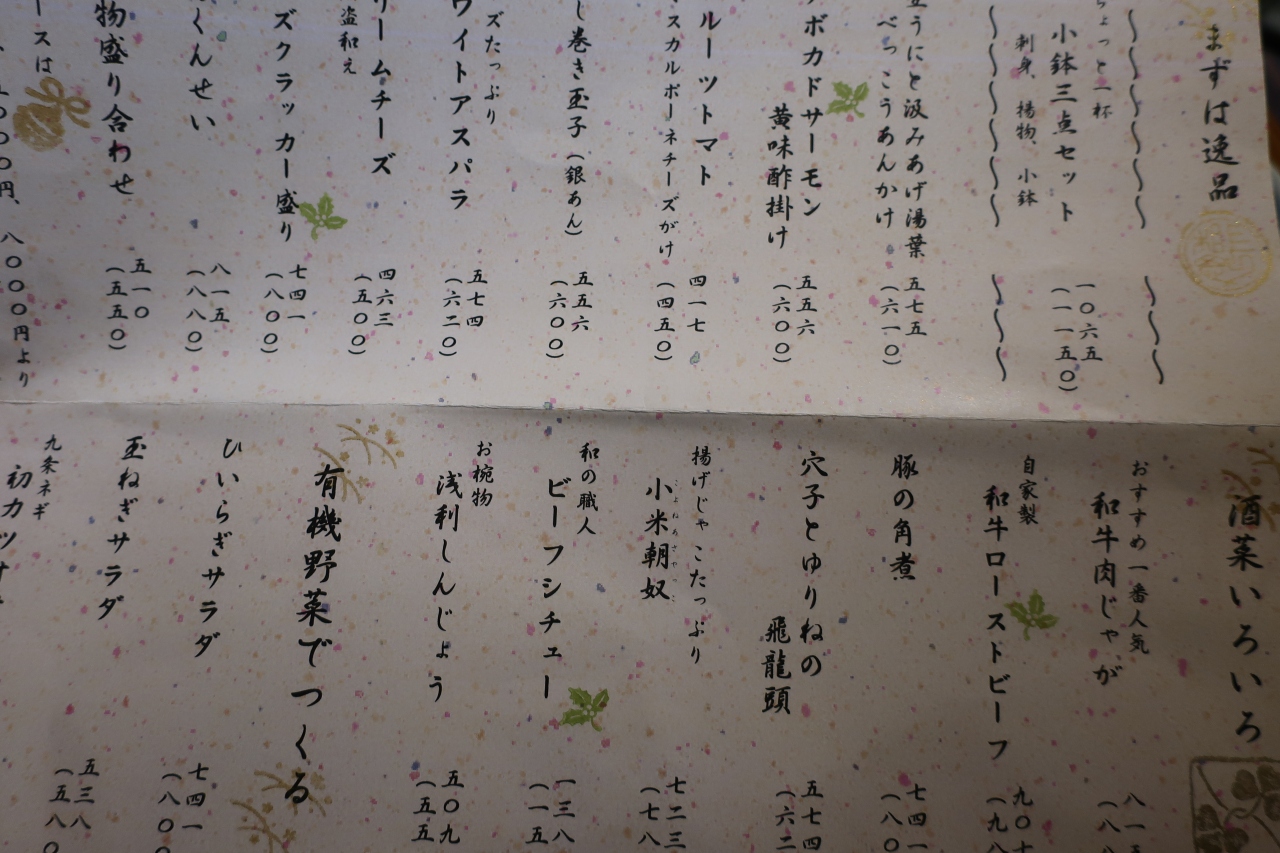 まずは逸品
ちょっと一杯
小鉢三点セット
一〇六五
(一一五〇)
刺身、揚物、小鉢
うにと汲みあげ湯葉
べっこうあんかけ
五七五
(六一〇)
ボカドサーモン
黄味酢掛け
五五六
(六〇〇)
ルーツトマト
スカルポーネチーズがけ
四一七
(四五〇)
し巻き玉子(銀あん)
五五六
(六〇〇)
ズたっぷり
ワイトアスパラ
五七四
(六二〇)
リームチーズ
盗和え
四六三
(五〇〇)
ズクラッカー盛り
七四一
(八〇〇)
くんせい
八一五
(八八〇)
物盛り合わせ
五一〇
(五五〇)
ースは
〇〇〇円、八〇〇〇円より
酒菜いろいろ
おすすめ一番人気
和牛肉じゃが
八一
(八八
自家製
和牛ローストビーフ
九〇
(九八
豚の角煮
七四一
(八〇
穴子とゆりねの
飛龍頭
五七四
(六二
揚げじゃこたっぷり
小米朝奴
七二三
(七八
和の職人
ビーフシチュー
一三八
(一五
お椀物
浅利しんじょう
五〇九
(五五
有機野菜でつくる
ひいらぎサラダ
七四一
(八〇〇
玉ねぎサラダ
五三八
(五八〇
九条ネギ
初カツ